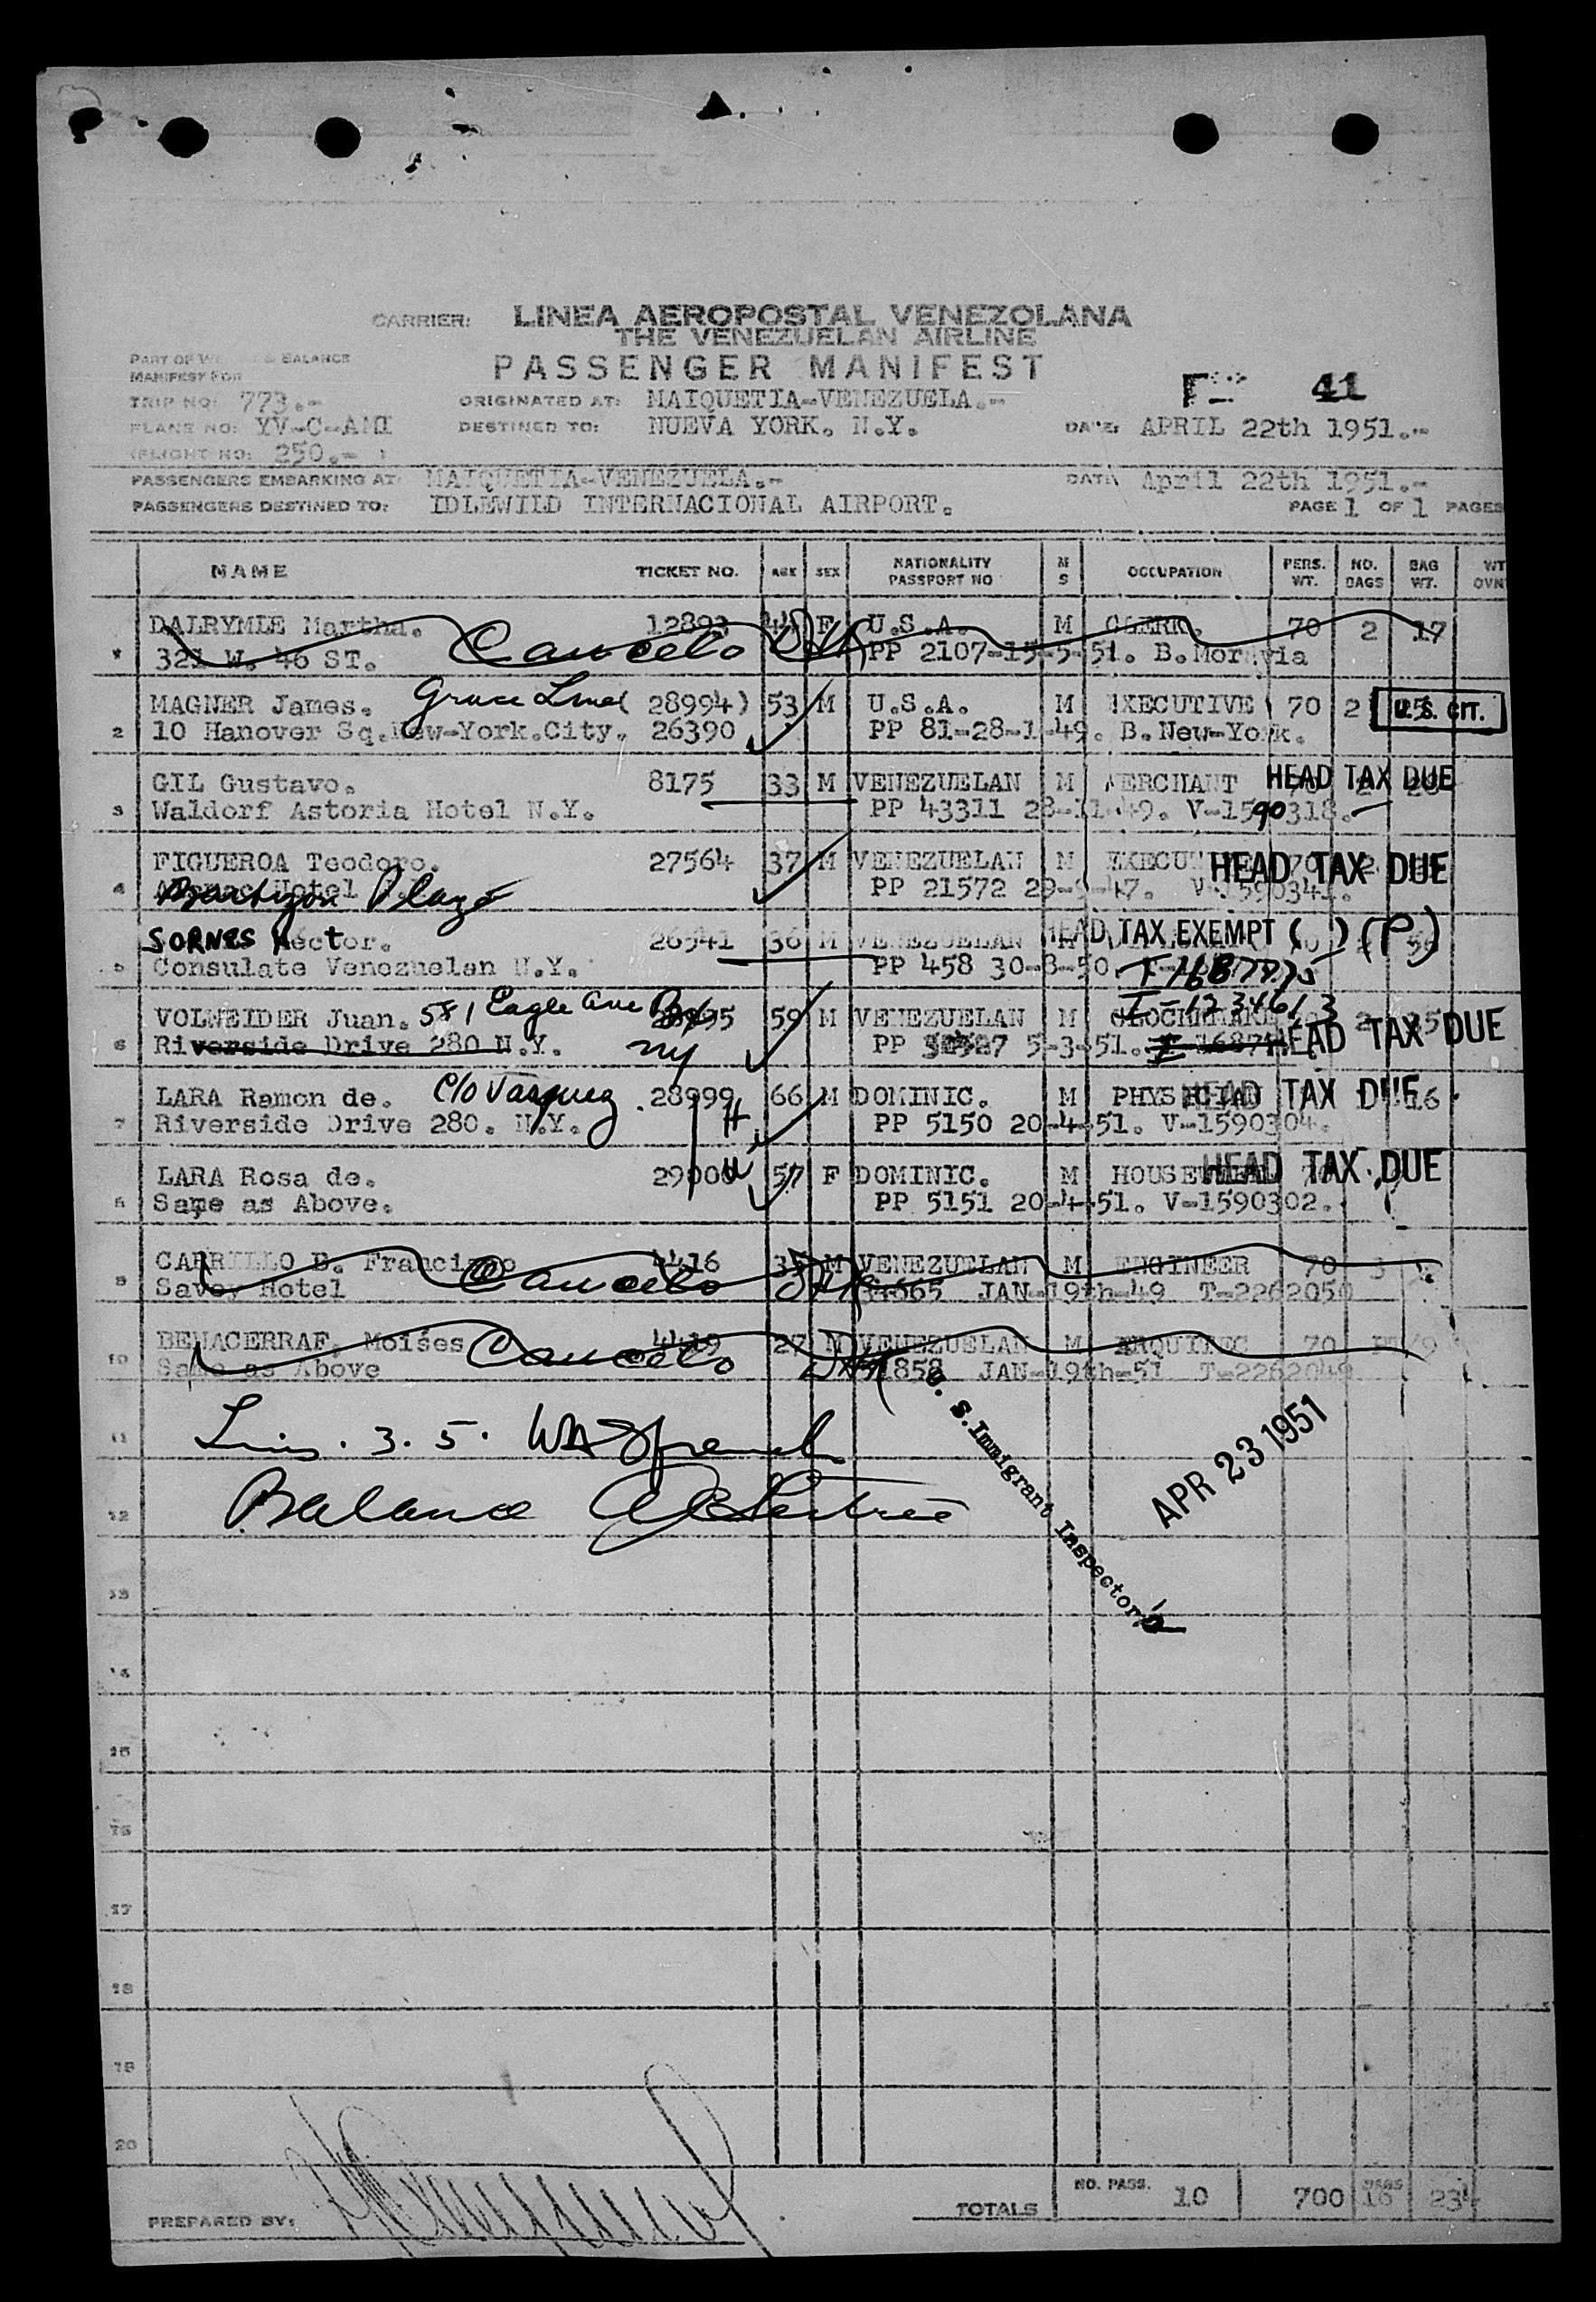 CARRIER: LINEA AEROPOSTAL VENEZOLANA
THE VENEZUELAN AIRLINE
PART OF BALANCE
MANIFEST FOR
PASSENGER MANIFEST
41
TRIP NO: 773.-
ORIGINATED AT: MAIQUETIA-VENEZUELA.-
PLANE NO: YV-C-AMI
DESTINED TO: NUEVA YORK. N.Y.
DATE: APRIL 22th 1951.-
(FLIGHT NO: 250.- )
PASSENGERS EMBARKING AT: MAIQUETIA-VENEZUELA.-
DATE April 22th 1951.-
PASSENGERS DESTINED TO: IDLEWILD INTERNACIONAL AIRPORT.
PAGE 1 OF 1 PAGES
NAME TICKET NO. AGE SEX NATIONALITY PASSPORT NO M S OCCUPATION PERS. WT. NO. BAGS BAG WT. WT OVN
DALRYMLE Martha. 12893 F U.S.A. M CLERK. 70 2 17
1 321 W. 46 ST. Cancelo PP 2107-15-5-51. B.Moravia
MAGNER James. Grace Line ( 28994) 53 M U.S.A. M EXECUTIVE 70 2 U.S. CIT.
2 10 Hanover Sq.New-York.City. 26390 PP 81-28-1-49. B.New-York.
GIL Gustavo. 8175 33 M VENEZUELAN M MERCHANT HEAD TAX DUE
3 Waldorf Astoria Hotel N.Y. PP 43311 28-11-49. V-1590318.
FIGUEROA Teodoro. 27564 37 M VENEZUELAN M HEAD TAX DUE
4 Hotel Barbizon Plaza PP 21572
SORNES Hector. 26541 36 M VENEZUELAN HEAD TAX EXEMPT ( ) (P)
5 Consulate Venezuelan N.Y. PP 458 30-8-50.
I-1234613
VOLWEIDER Juan. 581 Eagle Ave Bx 28995 59 M VENEZUELAN M 2
6 Riverside Drive 280 N.Y. NY PP 5-3-51. HEAD TAX DUE
LARA Ramon de. C/o Vasquez 28999 66 M DOMINIC. M PHYSICIAN HEAD TAX DUE 16
7 Riverside Drive 280. N.Y. PP 5150 20-4-51. V-1590304.
LARA Rosa de. 29000 57 F DOMINIC. M HOUSEWIFE HEAD TAX DUE
8 Same as Above. PP 5151 20-4-51. V-1590302.
CARRILLO B. Francisco 4416 35 M VENEZUELAN M ENGINEER 70 3
9 Savoy Hotel Cancelo JAN-19th-49 T-2262050
BENACERRAF, Moises 4419 27 M VENEZUELAN M ARQUITEC 70
10 Same as Above Cancelo 51858 JAN-19th-51 T-2262049
11 Lins. 3. 5.
12 Balance
U. S. Immigrant Inspector
APR 23 1951
13
14
15
16
17
18
19
20
PREPARED BY:
TOTALS NO. PASS. 10 700 BAGS 16 234